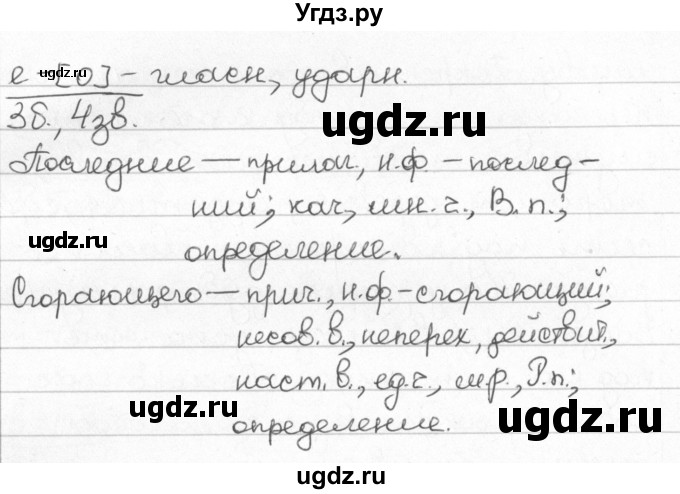 Угдз.ру
е - [о] - гласн., ударн.
3б., 4зв.
Последние — прилаг., н.ф. - послед-
ний; кач., мн.ч., В.п.;
определение.
Сгорающего — прич., н.ф. - сгорающий;
несов.в., неперех., действит.,
наст.в., ед.ч., м.р., Р.п.;
определение.
ugdz.ru
ugdz.ru
ugdz.ru
ugdz.ru
ugdz.ru
ugdz.ru
ugdz.ru
ugdz.ru